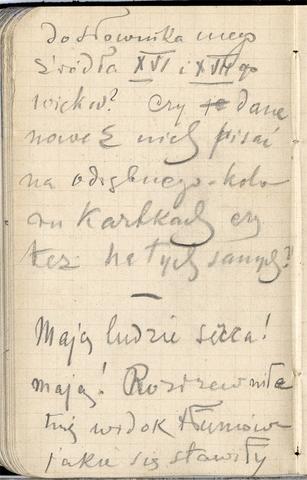 do słownika mego
źródła XVI i XVII go
wieków? Czy te dane
nowe z nich pisać
na odrębnego kolo
ru kartkach czy
też na tych samych?
—
Mają ludzie serca!
mają! Rozrzewniło
mię widok tłumów
jakie się stawiły